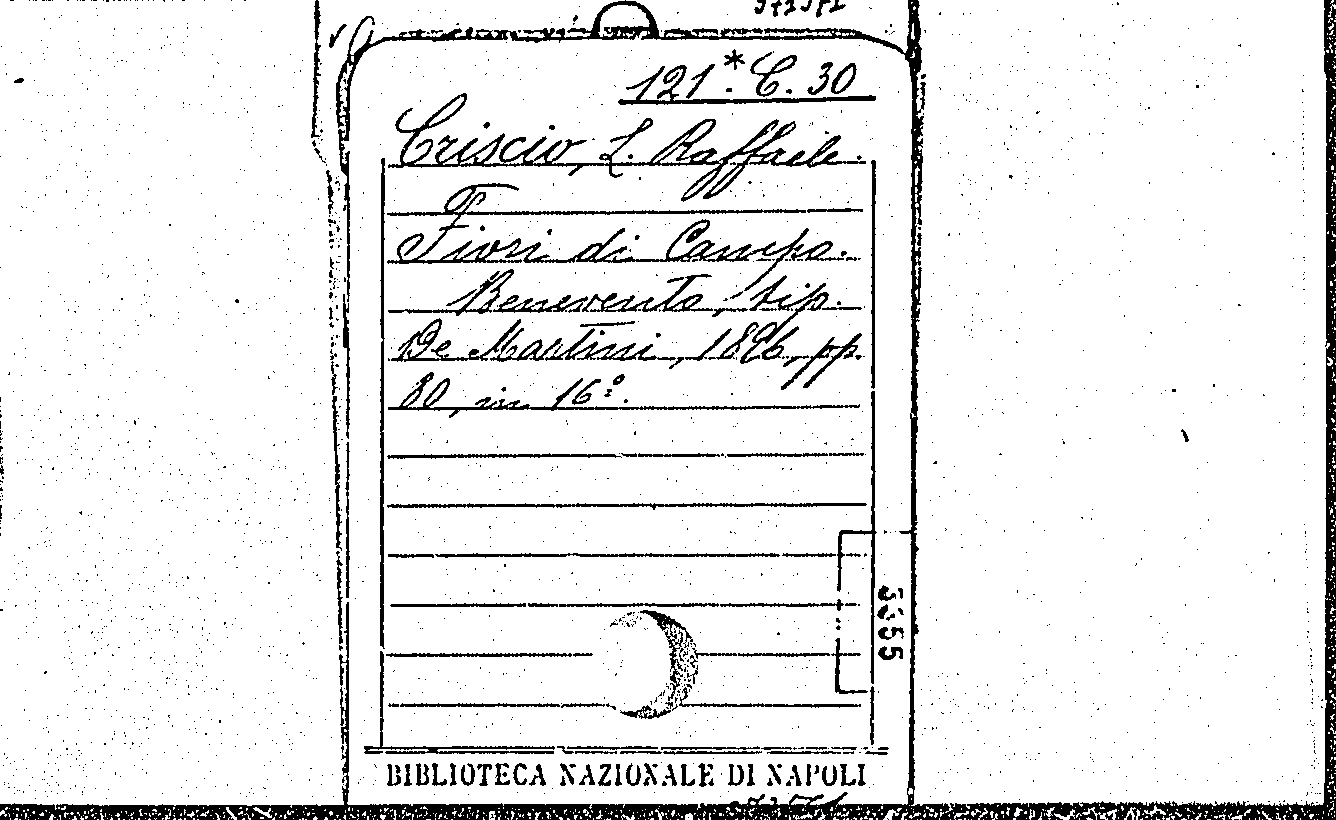 121*. C. 30
Criscio, L. Raffaele.
Fiori di Campo.
Benevento, tip.
De Martini, 1896, pp.
80, in 16º.
BIBLIOTECA NAZIONALE DI NAPOLI